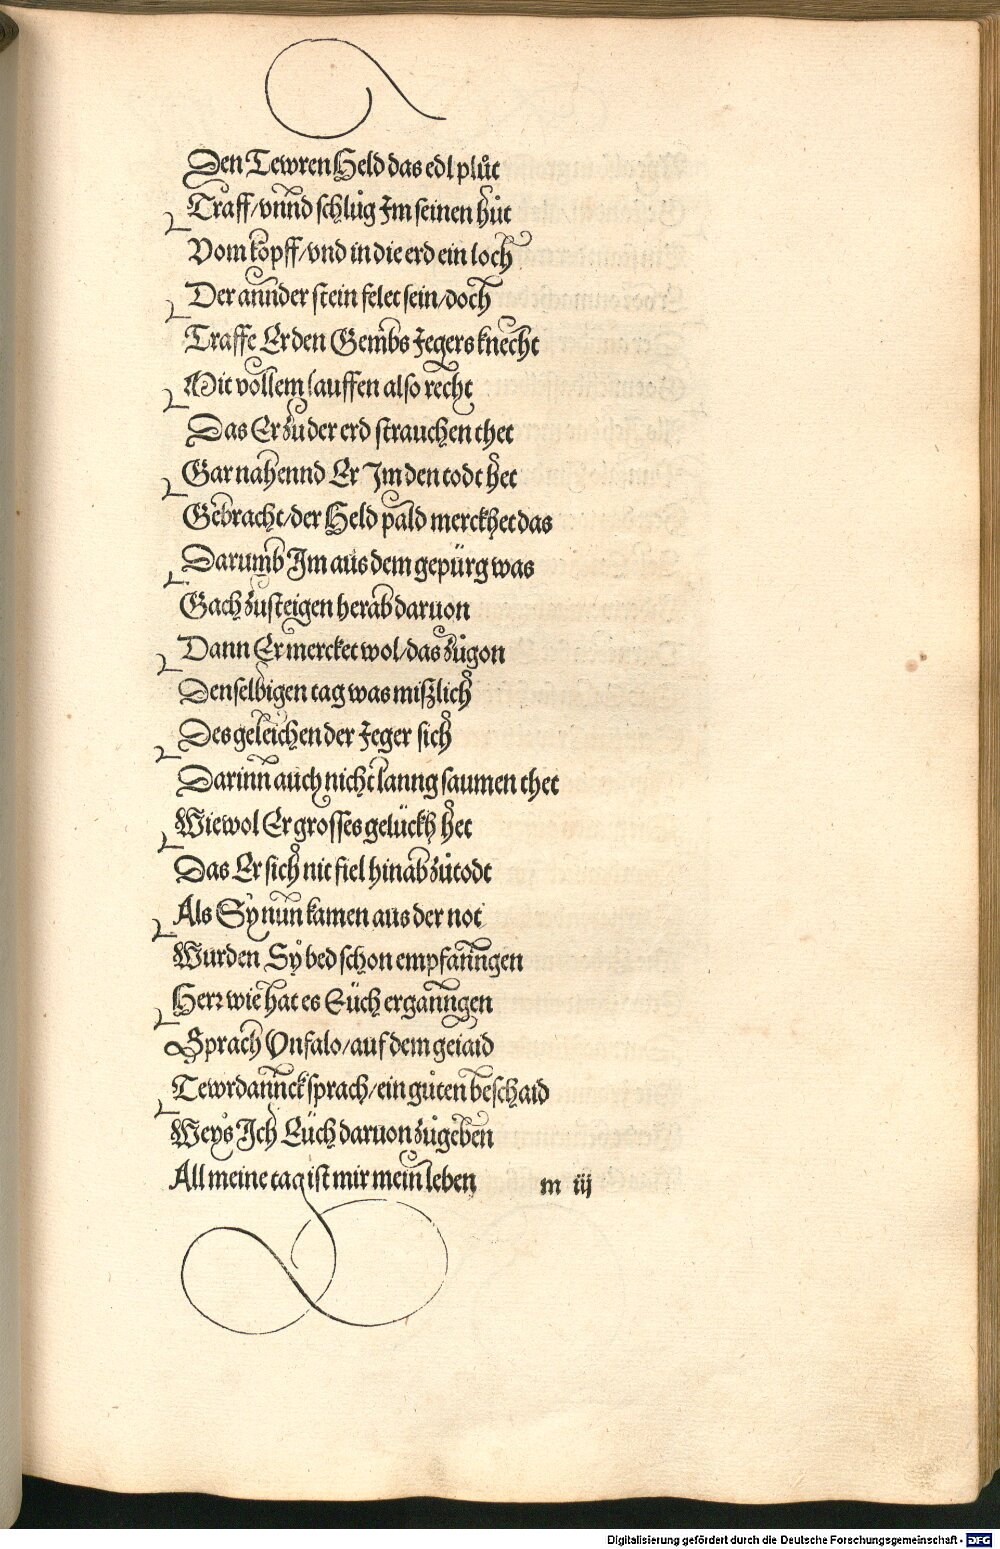 Den Tewren Held das edl plůt
Traff/vnnd schlůg Im seinen hůt
Vom kopff/vnd in die erd ein loch
Der annder stein felet sein/doch
Traffe Er den Gembs Jegers knecht
Mit vollem lauffen also recht
Das Er zu der erd strauchen thet
Gar nahennd Er Im den todt het
Gebracht/der Held pald merckhet das
Darumb Im aus dem gepürg was
Gach zusteigen herab daruon
Dann Er mercket wol/das zůgon
Denselbigen tag was mißlich
Des geleichen der Jeger sich
Darinn auch nicht lanng saumen thet
Wiewol Er grosses gelückh het
Das Er sich nit fiel hinab zůtodt
Als Sy nun kamen aus der not
Wurden Sy bed schon empfanngen
Herr wie hat es Eüch erganngen
Sprach Vnfalo/auf dem geiaid
Tewrdannck sprach/ein gůten beschaid
Weys Ich Eüch daruon zůgeben
All meine tag ist mir mein leben
m iij
Digitalisierung gefördert durch die Deutsche Forschungsgemeinschaft - DFG